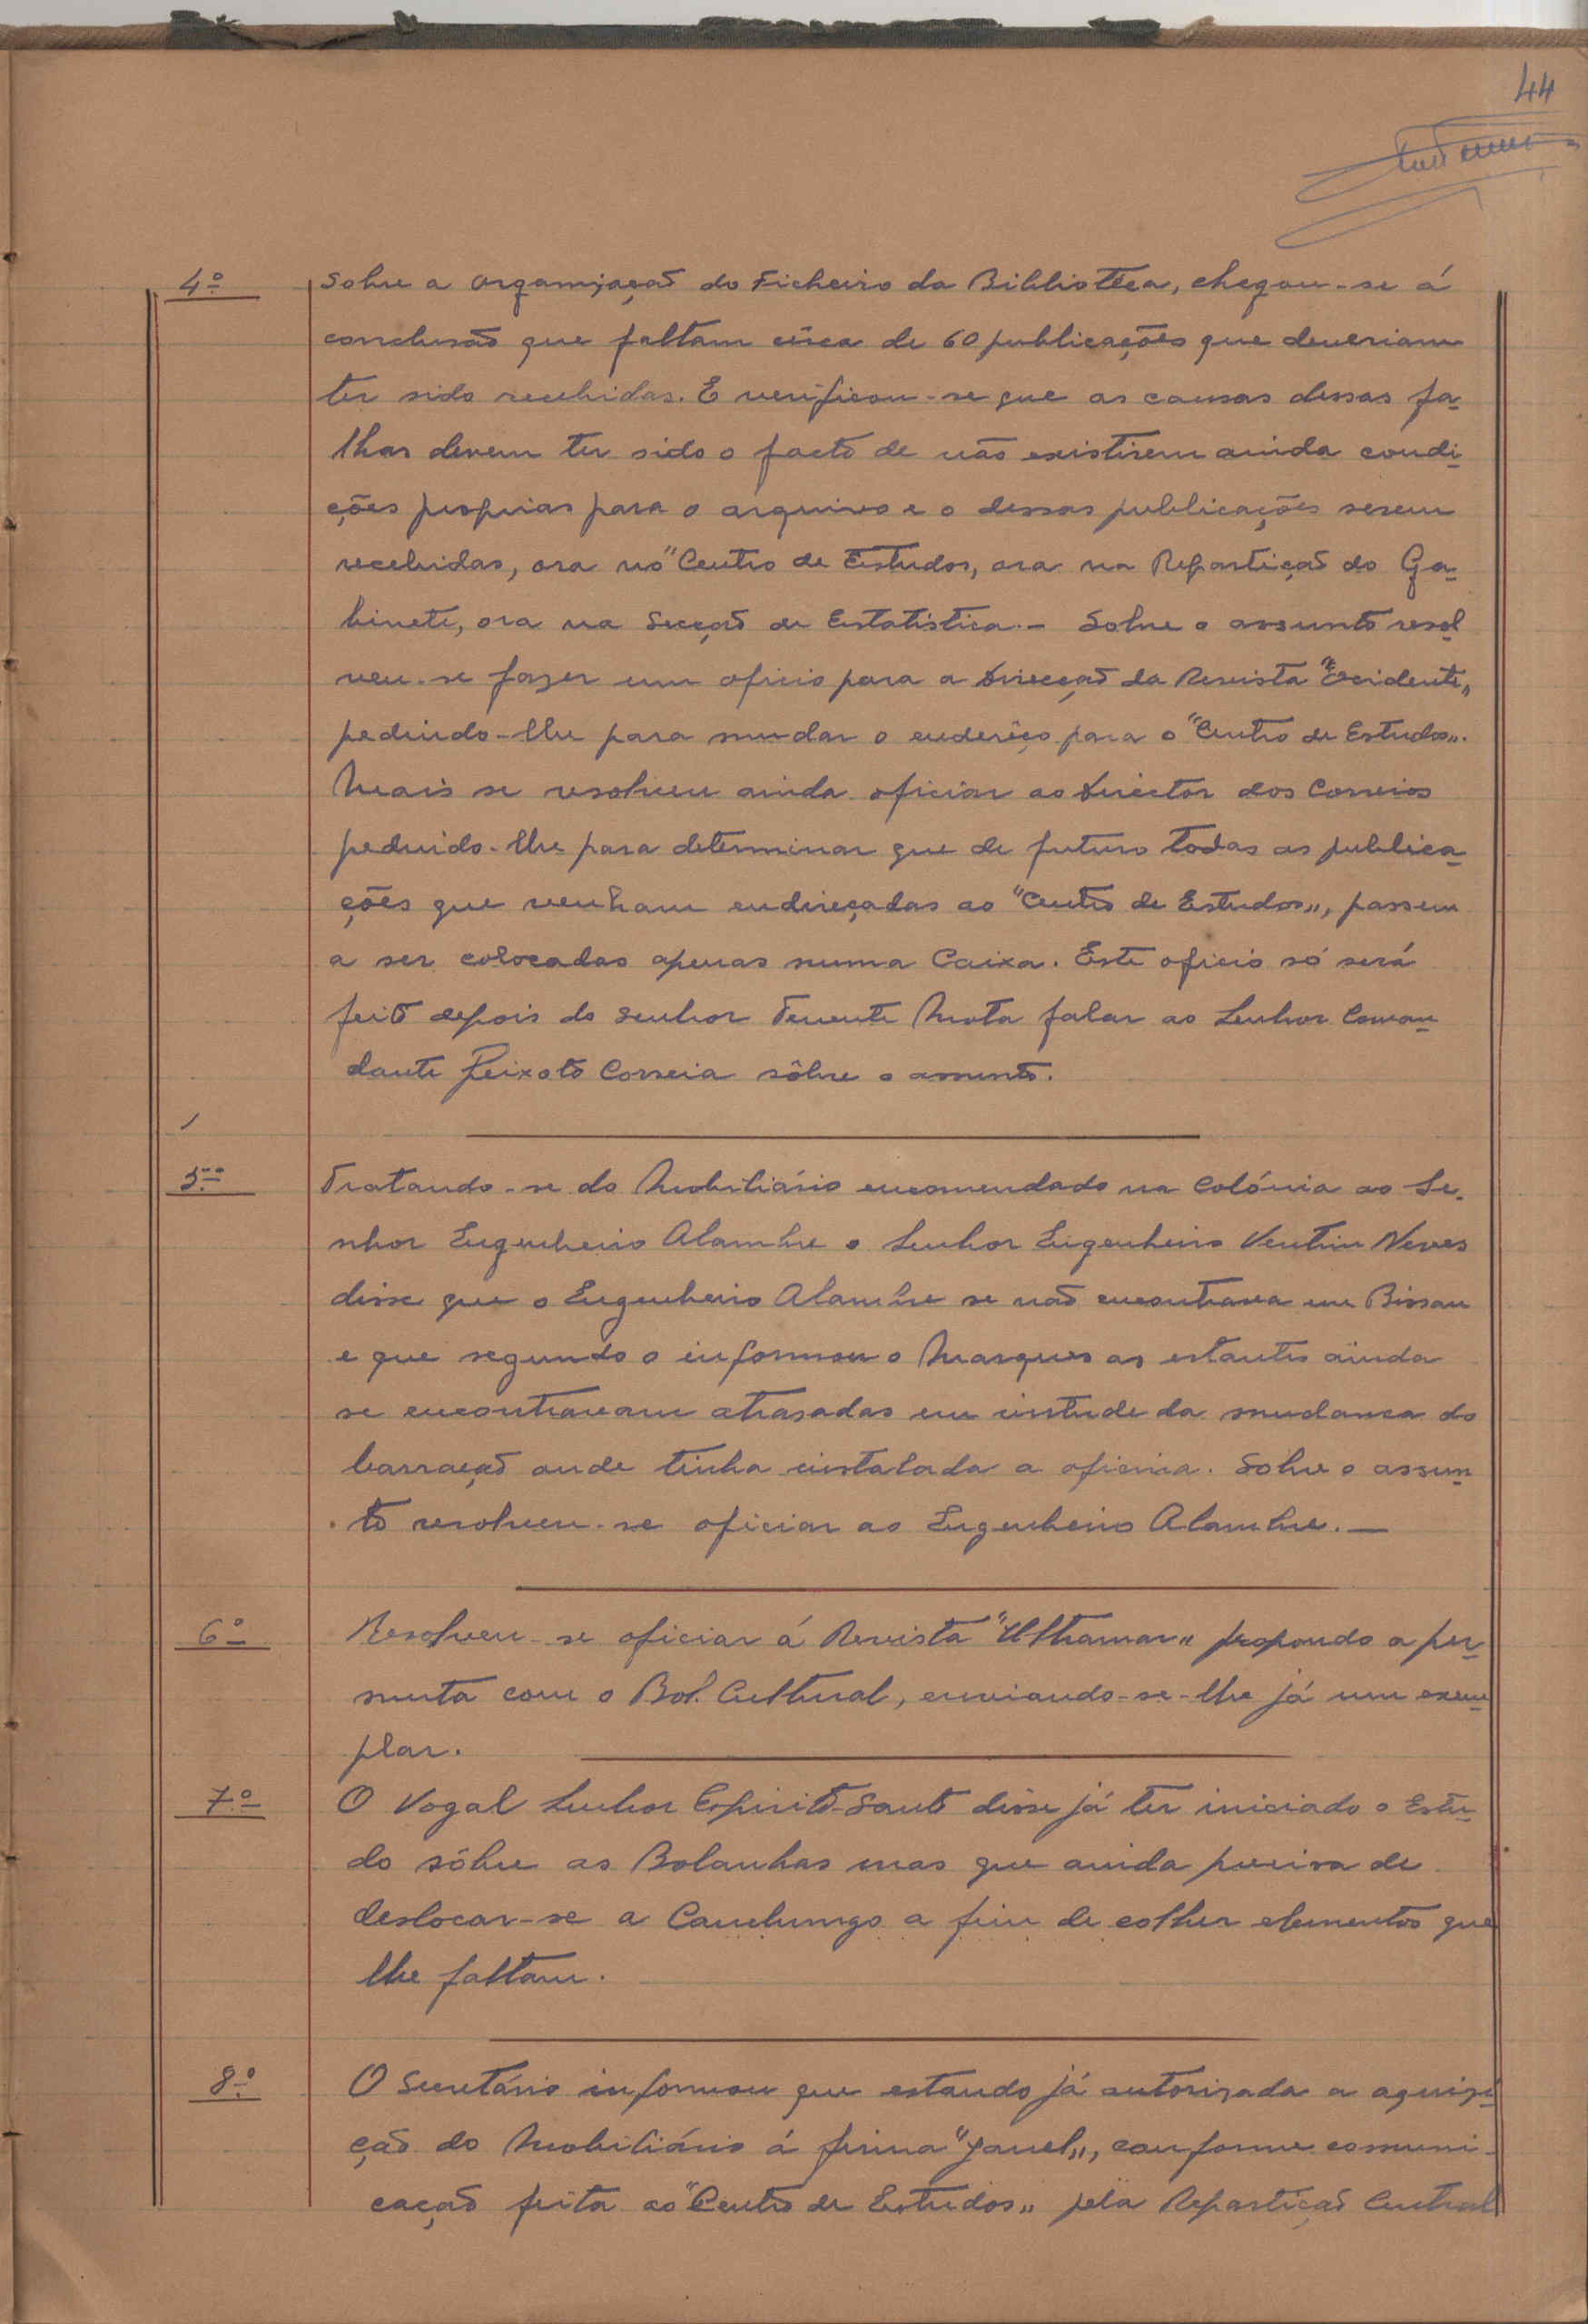 44
4º Sobre a organização do Ficheiro da Biblioteca, chegou-se á
conclusão que faltam cêrca de 60 publicações que deveriam
ter sido recebidas. E verificou-se que as causas dessas fa-
lhas devem ter sido o facto de não existirem ainda condi-
ções proprias para o arquivo e o dessas publicações serem
recebidas, ora no "Centro de Estudos, ora na Repartição do Ga-
binete, ora na Secção de Estatistica.- Sobre o assunto resol
veu-se fazer um oficio para a Direcção da Revista "Ocidente„
pedindo-lhe para mudar o enderêço para o "Centro de Estudos„.
Mais se resolveu ainda oficiar ao Director dos Correios
pedindo-lhe para determinar que de futuro todas as publica-
ções que venham endireçadas ao "Centro de Estudos„, passem
a ser colocadas apenas numa Caixa. Este oficio só será
feito depois do Senhor Tenente Mota falar ao Senhor Coman-
dante Peixoto Correia sôbre o assunto.
5º Tratando-se do Mobiliário encomendado na Colónia ao Se-
nhor Engenheiro Alambre o Senhor Engenheiro Ventim Neves
disse que o Engenheiro Alambre se não encontrava em Bissau
e que segundo o informou o Marques as estantes ainda
se encontravam atrasadas em virtude da mudança do
barracão onde tinha instalada a oficina. Sobre o assun-
to resolveu-se oficiar ao Engenheiro Alambre.—
6º Resolveu-se oficiar á Revista "Ultramar„ propondo a per-
muta com o Bol. Cultural, enviando-se-lhe já um exem-
plar.
7º O Vogal Senhor Espirito-Santo disse já ter iniciado o Estu-
do sôbre as Bolanhas mas que ainda precisa de
deslocar-se a Canchungo a fim de colher elementos que
lhe faltam.
8º O Secretário informou que estando já autorizada a aquisi-
ção do Mobiliário á firma "Janel„, conforme comuni-
cação feita ao "Centro de Estudos„ pela Repartição Central